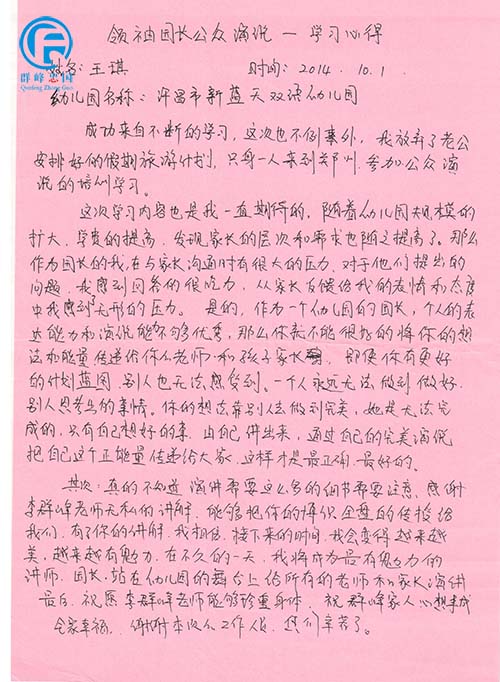 领袖园长公众演说一学习心得
群峰忠国
Qunfeng Zhong Guo
姓名：王琪 时间：2014.10.1
幼儿园名称：许昌市新蓝天双语幼儿园
成功来自不断的学习，这次也不例事外，我放弃了老公
安排好的假期旅游计划，只身一人来到郑州，参加公众演
说的培训学习。
这次学习内容也是我一直期待的，随着幼儿园规模的
扩大，学费的提高，发现家长的层次和要求也随之提高了。那么
作为园长的我，在与家长沟通时有很大的压力，对于他们提出的
问题，我感到回答的很吃力，从家长反馈给我的表情和态度
中我感到了无形的压力。是的，作为一个幼儿园的园长，个人的表
达能力和演说能不够优秀，那么你就不能很好的将你的想
法和能量传递给你的老师和孩子家长，即使你有更好
的计划蓝图，别人也无法感受到。一个人永远无法做到做好
别人思考的事情。你的想法靠别人去做到完美，她是无法完
成的，只有自己想好的事，由自己讲出来，通过自己的完美演说
把自己这个正能量传递给大家，这样才是最正确，最好的。
其次：真的不知道演讲需要这么多的细节需要注意，感谢
李群峰老师无私的讲解，能够把你的博识全盘的传授给
我们，有了你的讲解，我相信，接下来的时间，我会变得越来越
美，越来越有魅力，在不久的一天，我将成为最有魅力的
讲师，园长，站在幼儿园的舞台上给所有的老师和家长演讲
最后，祝愿李群峰老师能够珍重身体，祝群峰家人心想事成
全家幸福，谢谢本次的工作人员，您们辛苦了。